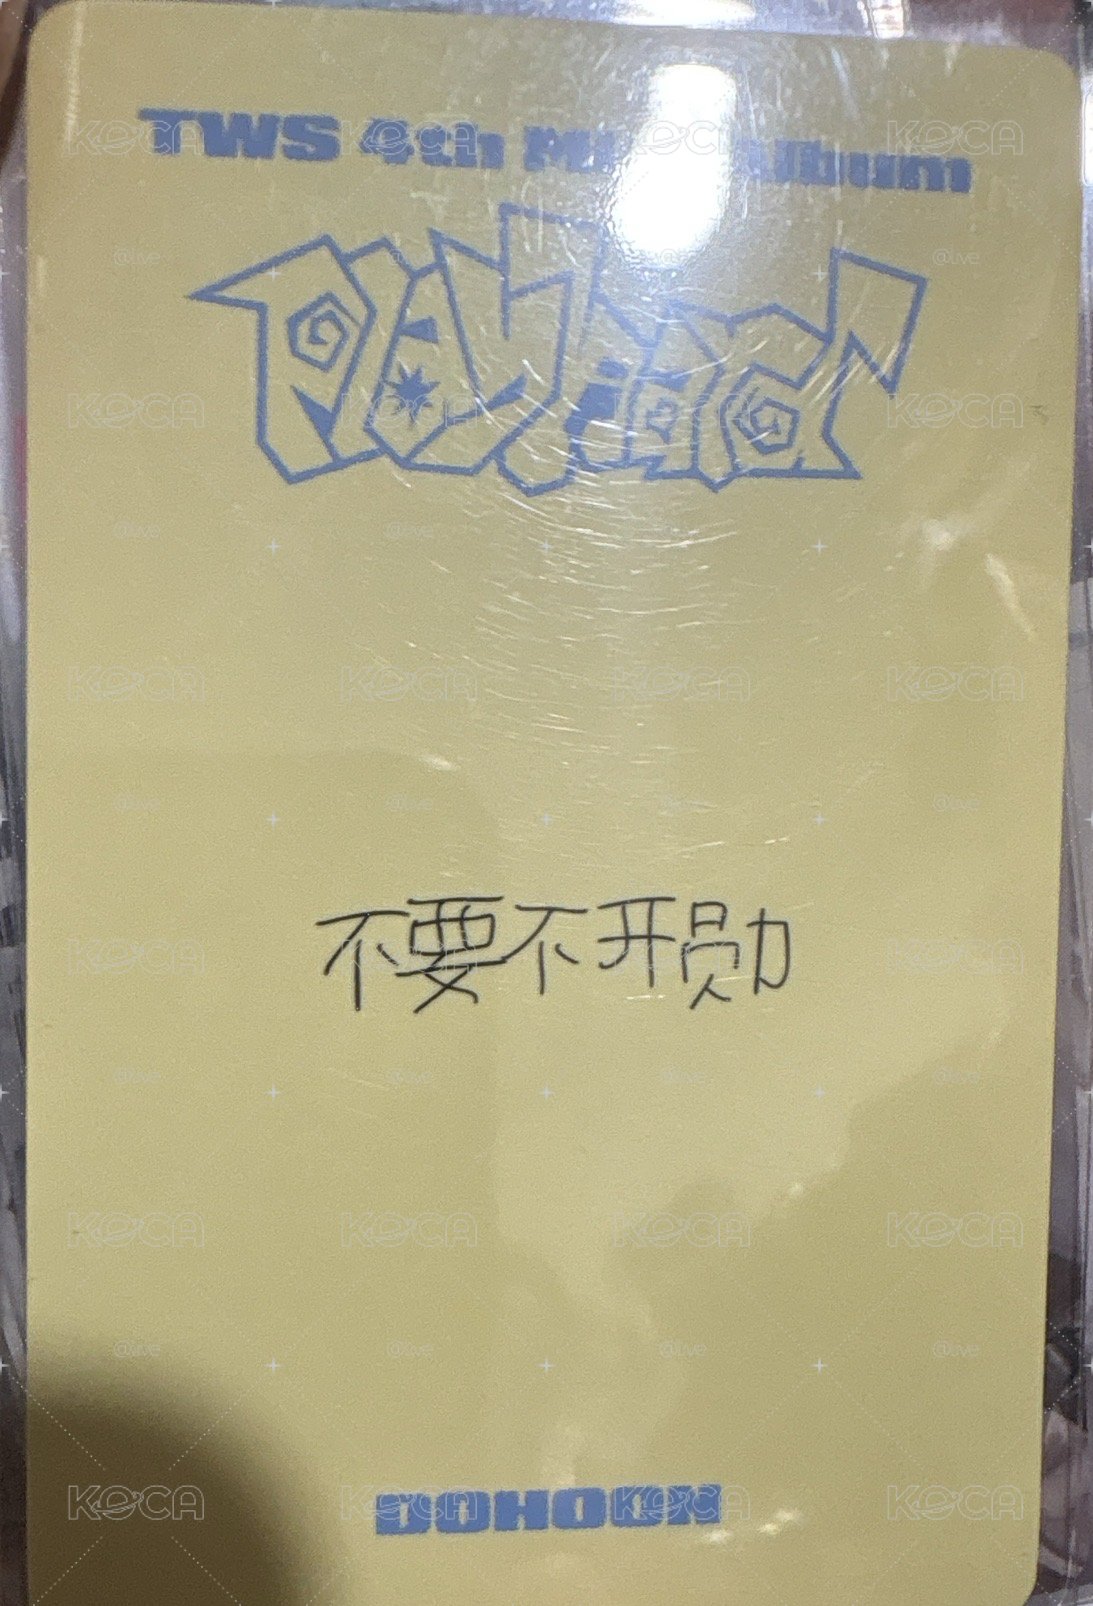 TWS 4th Mini Album
play hard
不要不开勋
DOHOON
KCA
@live